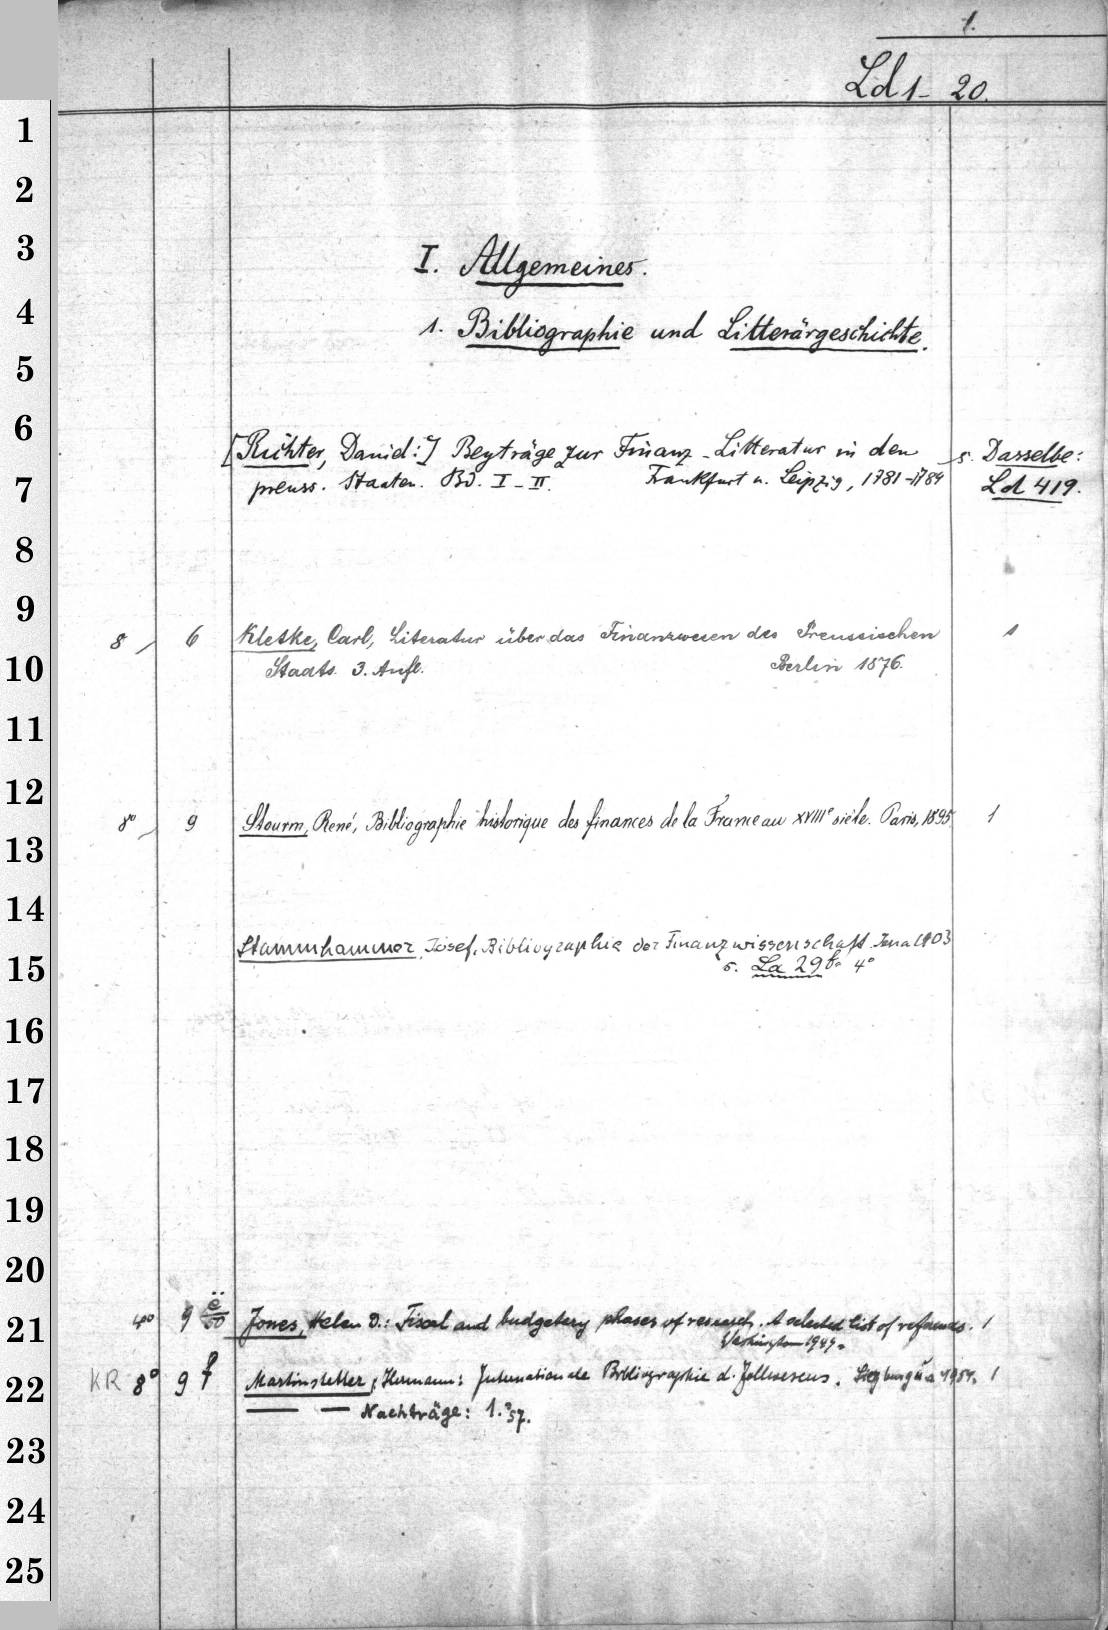 1.
Ld 1-20.
1
2
3
I. Allgemeines.
4
1. Bibliographie und Litterärgeschichte.
5
6
[Richter, David:] Beyträge zur Finanz-Litteratur in den s. Dasselbe:
7
preuss. Staaten. Bd. I-II. Frankfurt u. Leipzig, 1781-1784 Ld 419.
8
9
8 6 Kletke, Carl, Literatur über das Finanzwesen des Preussischen 1
10
Staats. 3. Aufl. Berlin 1876.
11
12
8° 9 Stourm, René, Bibliographie historique des finances de la France au XVIIIe siècle. Paris, 1895 1
13
14
Stammhammer, Josef, Bibliographie der Finanzwissenschaft. Jena 1903
15
s. La 29 4°
16
17
18
19
20
21
4° 9 Jones, Helen D.: Fiscal and budgetery phases of research. A selected list of references. 1
Washington 1949.
22
KR 8° 9 f Martinstetter, Hermann: Internationale Bibliographie d. Zollwesens. Siegburg 1954. 1
Nachträge: 1. '57.
23
24
25